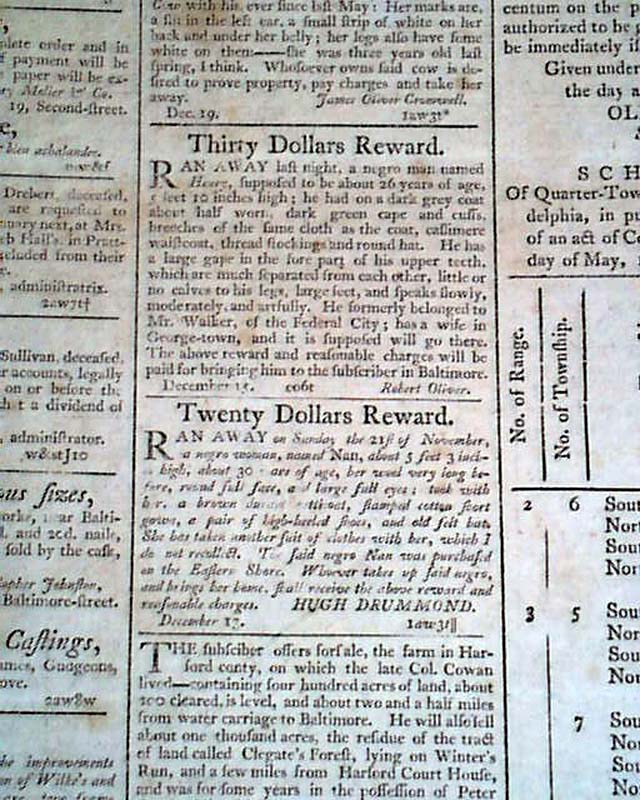 plete order and in
payment will be
paper will be ex-
Melier & Co.
19, Second-street.
bien achalander.
Drebert, deceased,
are requested to
nuary next, at Mrs.
eb Hall's, in Pratt-
cluded from their
administratrix.
2aw7t†
Sullivan, deceased.
er accounts, legally
on or before the
that a dividend of
, administrator.
w&stJ10
ous sizes,
orks, near Balti-
d. and 20d. nails,
sold by the cask,
opher Johnston,
Baltimore-street.
Castings,
ames, Gudgeons,
ove.
2aw8w
the improvements
on of Wilke's and
Cow with his, ever since last May: Her marks are,
a slit in the left ear, a small strip of white on her
back and under her belly; her legs also have some
white on them——she was three years old last
spring, I think. Whosoever owns said cow is de-
sired to prove property, pay charges and take her
away. James Oliver Cromwell.
Dec. 19. 1aw3t*
Thirty Dollars Reward.
RAN AWAY last night, a negro man named
Henry, supposed to be about 26 years of age,
5 feet 10 inches high; he had on a dark grey coat
about half worn, dark green cape and cuffs,
breeches of the same cloth as the coat, cassimere
waistcoat, thread stockings and round hat. He has
a large gape in the fore part of his upper teeth,
which are much separated from each other, little or
no calves to his legs, large feet, and speaks slowly,
moderately, and artfully. He formerly belonged to
Mr. Walker, of the Federal City; has a wife in
George-town, and it is supposed will go there.
The above reward and reasonable charges will be
paid for bringing him to the subscriber in Baltimore.
December 15. eo6t Robert Oliver.
Twenty Dollars Reward.
RAN AWAY on Sunday the 21st of November,
a negro woman, named Nan, about 5 feet 3 inch-
high, about 30 of age, her wool very long be-
fore, round full face, and large full eyes; took with
her, a brown petticoat, stamped cotton short
gown, a pair of high-heeled shoes, and old felt hat.
She has taken another suit of clothes with her, which I
do not recollect. The said negro Nan was purchased
on the Eastern Shore. Whoever takes up said negro,
and brings her home, shall receive the above reward and
reasonable charges. HUGH DRUMMOND.
December 17. 1aw3t||
THE subsciber offers for sale, the farm in Har-
ford conty, on which the late Col. Cowan
lived—containing four hundred acres of land, about
200 cleared, is level, and about two and a half miles
from water carriage to Baltimore. He will also sell
about one thousand acres, the residue of the tract
of land called Clegate's Forest, lying on Winter's
Run, and a few miles from Harford Court House,
and was for some years in the possession of Peter
centum on the p
authorized to be p
be immediately i
Given under
the day a
OL
SCH
Of Quarter-Tow
delphia, in p
of an act of Co
day of May,
No. of Range.
No. of Township.
2 6 Sou
Nor
Sou
Nor
3 5 Sou
Nor
Sou
Nor
7 Sou
No
Sou
No